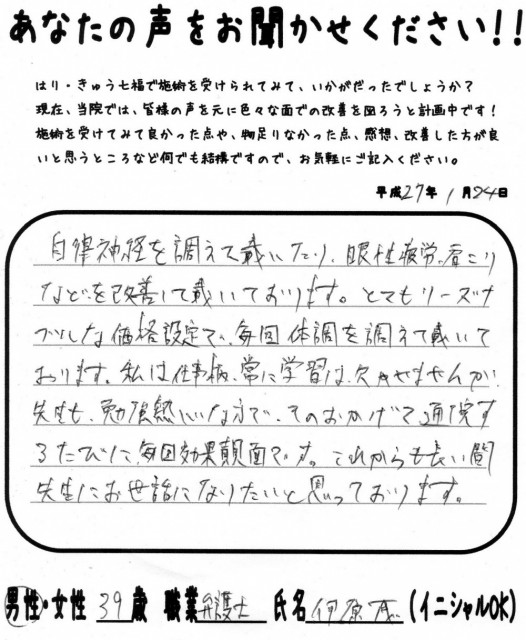 あなたの声をお聞かせください!!
はり・きゅう七福で施術を受けられてみて、いかがだったでしょうか?
現在、当院では、皆様の声を元に色々な面での改善を図ろうと計画中です!
施術を受けてみて良かった点や、物足りなかった点、感想、改善した方が良
いと思うところなど何でも結構ですので、お気軽にご記入ください。
平成27年1月24日
自律神経を調えて戴いたり、眼性疲労、肩こり
などを改善して戴いております。とてもリーズナ
ブルな価格設定で、毎回体調を調えて戴いて
おります。私は仕事柄、常に学習は欠かせませんが
先生も、勉強熱心な方で、そのおかげで通院す
るたびに、毎回効果覿面です。これからも長い間
先生にお世話になりたいと思っております。
男性・女性 39歳 職業 弁護士 氏名 伊原 (イニシャルOK)